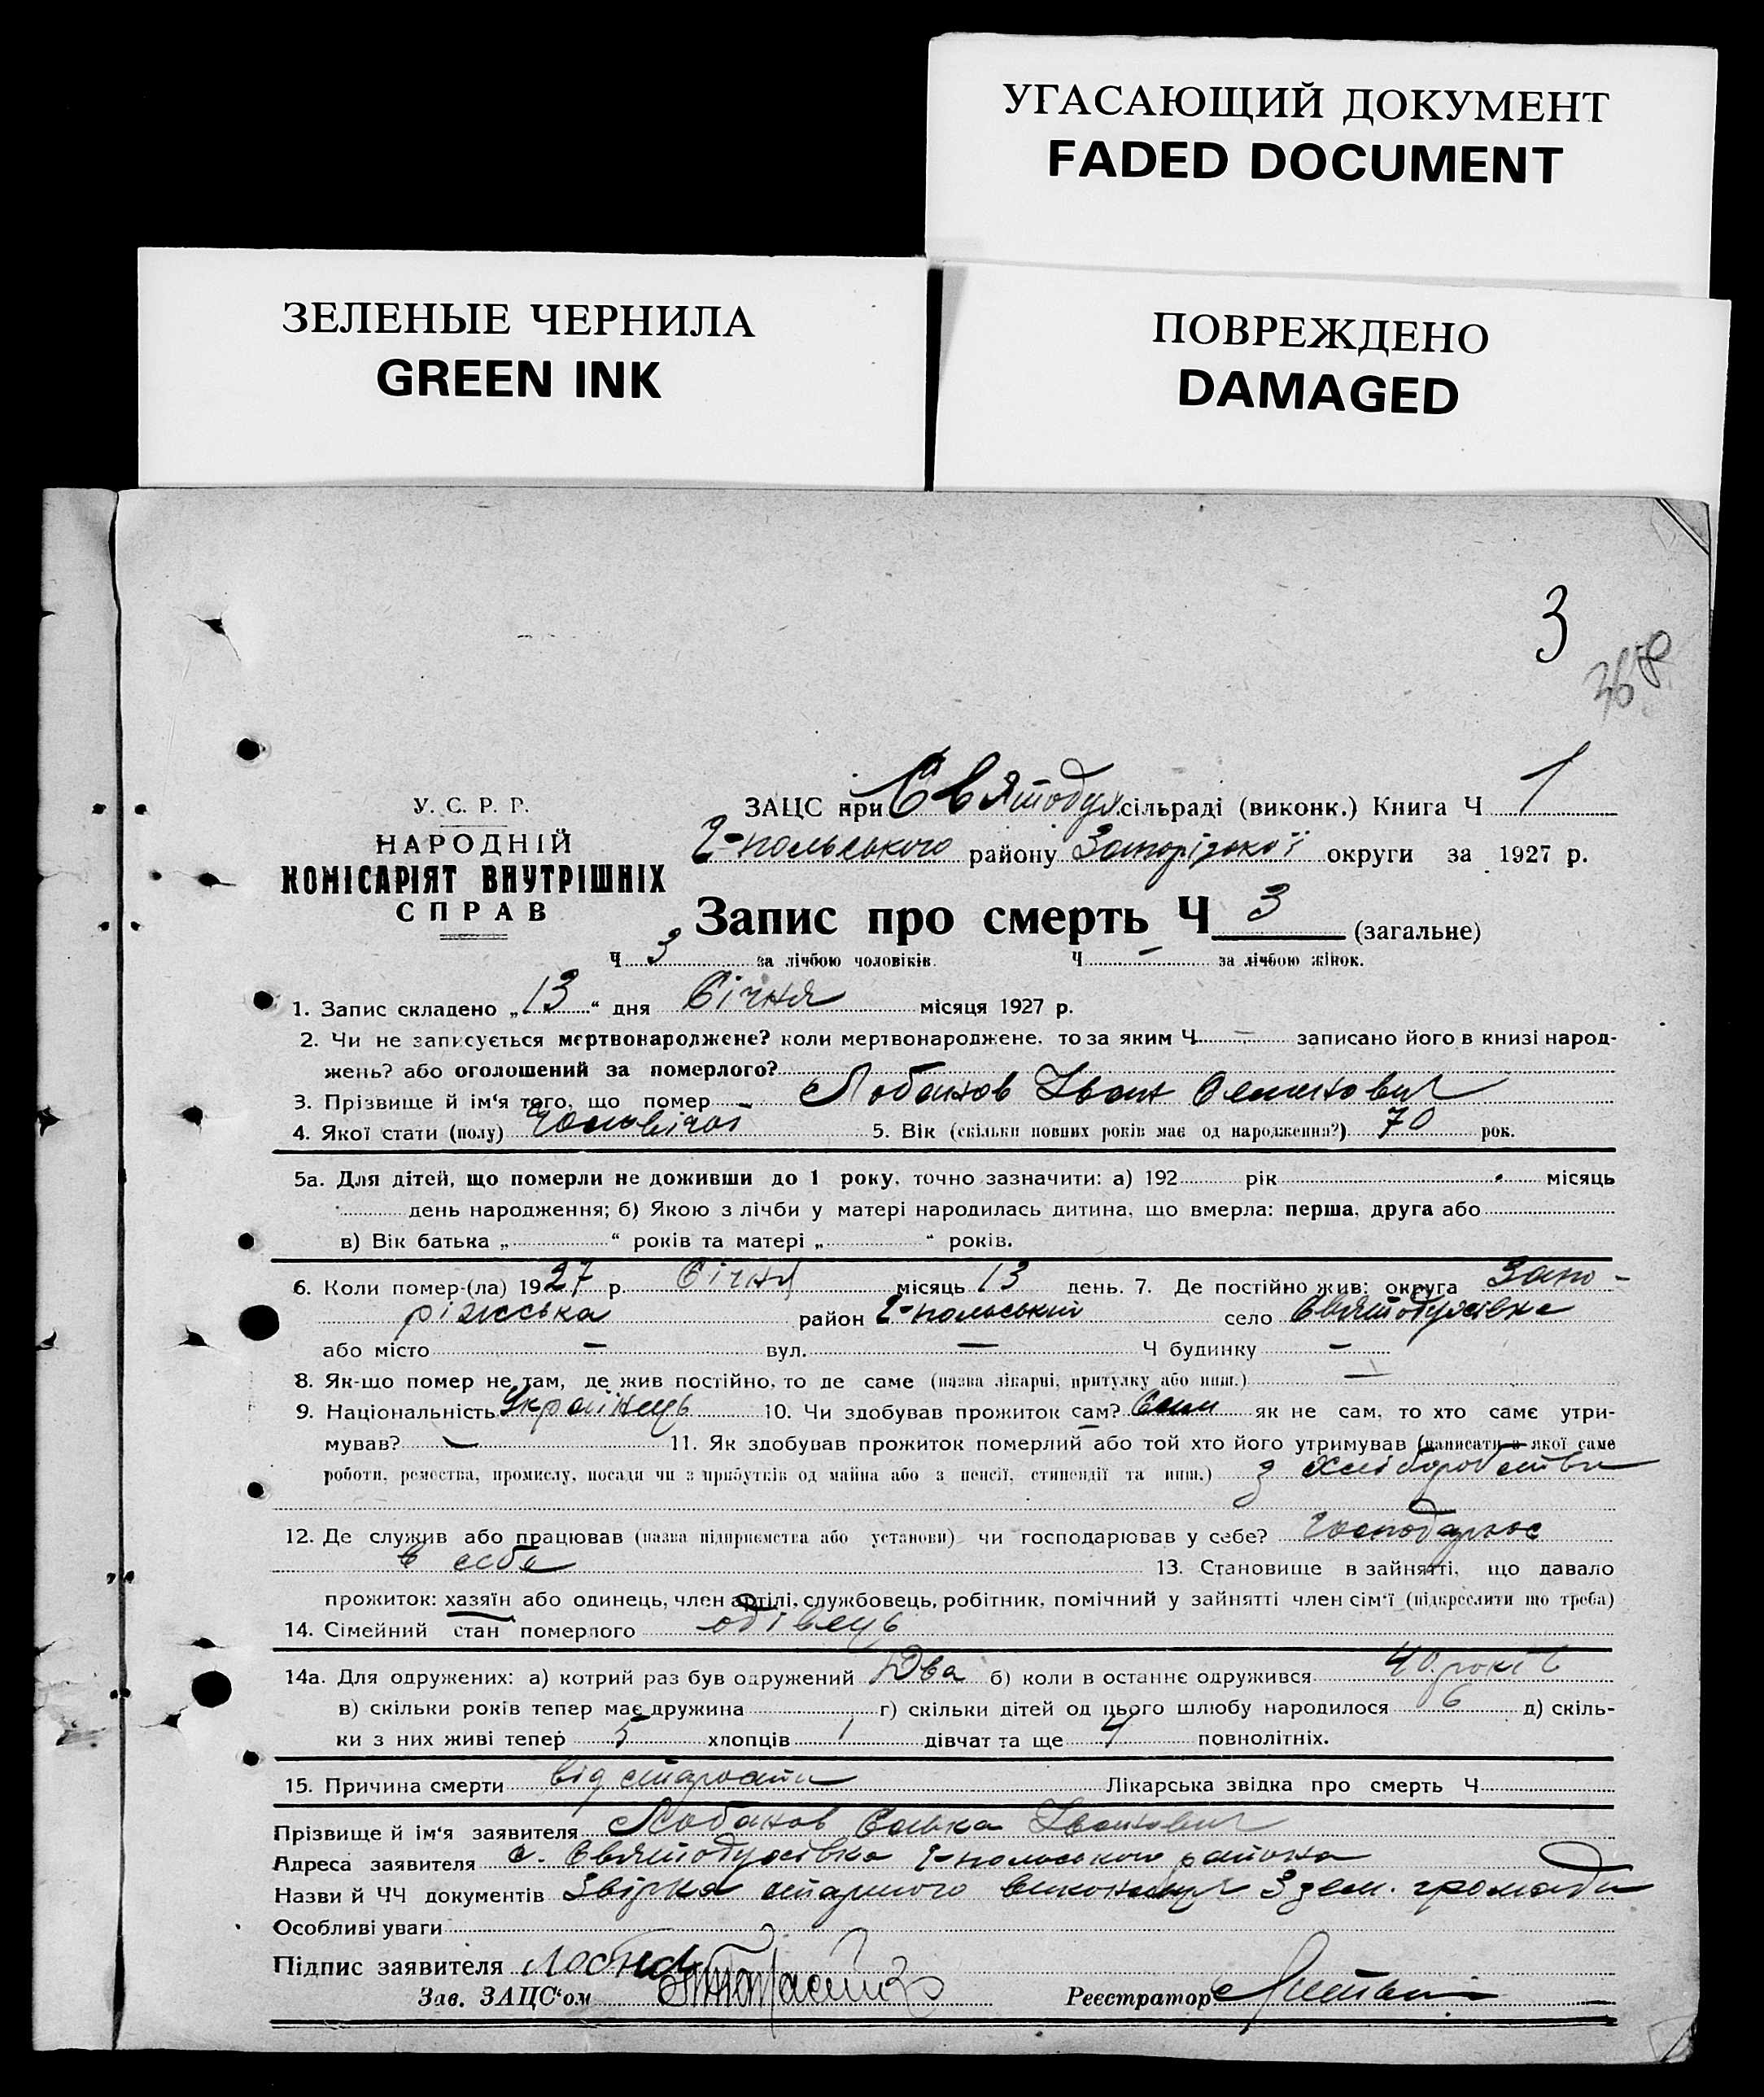 УГАСАЮЩИЙ ДОКУМЕНТ
FADED DOCUMENT
ЗЕЛЕНЫЕ ЧЕРНИЛА
GREEN INK
ПОВРЕЖДЕНО
DAMAGED
3
У. С. Р. Р.
НАРОДНІЙ
КОМІСАРІЯТ ВНУТРІШНІХ
СПРАВ
ЗАЦС при Святодух. сільраді (виконк.) Книга Ч 1
г-польського району Запорізької округи за 1927 р.
Запис про смерть Ч 3 (загальне)
Ч 3 за лічбою чоловіків. Ч — за лічбою жінок.
1. Запис складено „13“ дня Січня місяця 1927 р.
2. Чи не записується мертвонароджене? коли мертвонароджене, то за яким Ч — записано його в книзі народ-
жень? або оголошений за померлого?
3. Прізвище й ім'я того, що помер Лобанов Іван Семенович
4. Якої стати (полу) Чоловічої 5. Вік (скільки повних років має од народження?) 70 рок.
5а. Для дітей, що померли не доживши до 1 року, точно зазначити: а) 192 рік місяць
день народження; б) Якою з лічби у матері народилась дитина, що вмерла: перша, друга або
в) Вік батька „ “ років та матері „ “ років.
6. Коли помер-(ла) 1927 р. Січня місяць 13 день. 7. Де постійно жив: округа Запо-
ріжська район г-польський село Святодухівка
або місто — вул. — Ч будинку —
8. Як-що помер не там, де жив постійно, то де саме (назва лікарні, притулку або инш.) —
9. Національність Українець 10. Чи здобував прожиток сам? Сам як не сам, то хто саме утри-
мував? — 11. Як здобував прожиток померлий або той хто його утримував (написати з якої саме
роботи, ремества, промислу, посади чи з прибутків од майна або з пенсії, стипендії та инш.) з хліборобства
12. Де служив або працював (назва підприємства або установи) чи господарював у себе? господарює
в себе 13. Становище в зайнятті, що давало
прожиток: хазяїн або одинець, член артілі, службовець, робітник, помічний у зайнятті член сім'ї (підкреслити що треба)
14. Сімейний стан померлого одівець
14а. Для одружених: а) котрий раз був одружений Два б) коли в останнє одружився 40 років
в) скільки років тепер має дружина г) скільки дітей од цього шлюбу народилося 6 д) скіль-
ки з них живі тепер 5 хлопців 1 дівчат та ще 4 повнолітніх.
15. Причина смерти від старости Лікарська звідка про смерть Ч
Прізвище й ім'я заявителя Лобанов Савка Іванович
Адреса заявителя с. Святодухівка г-польського района
Назви й ЧЧ документів Звірка старшого виконавця 3 зем. громади
Особливі уваги
Підпис заявителя
Зав. ЗАЦС'ом
Реєстратор